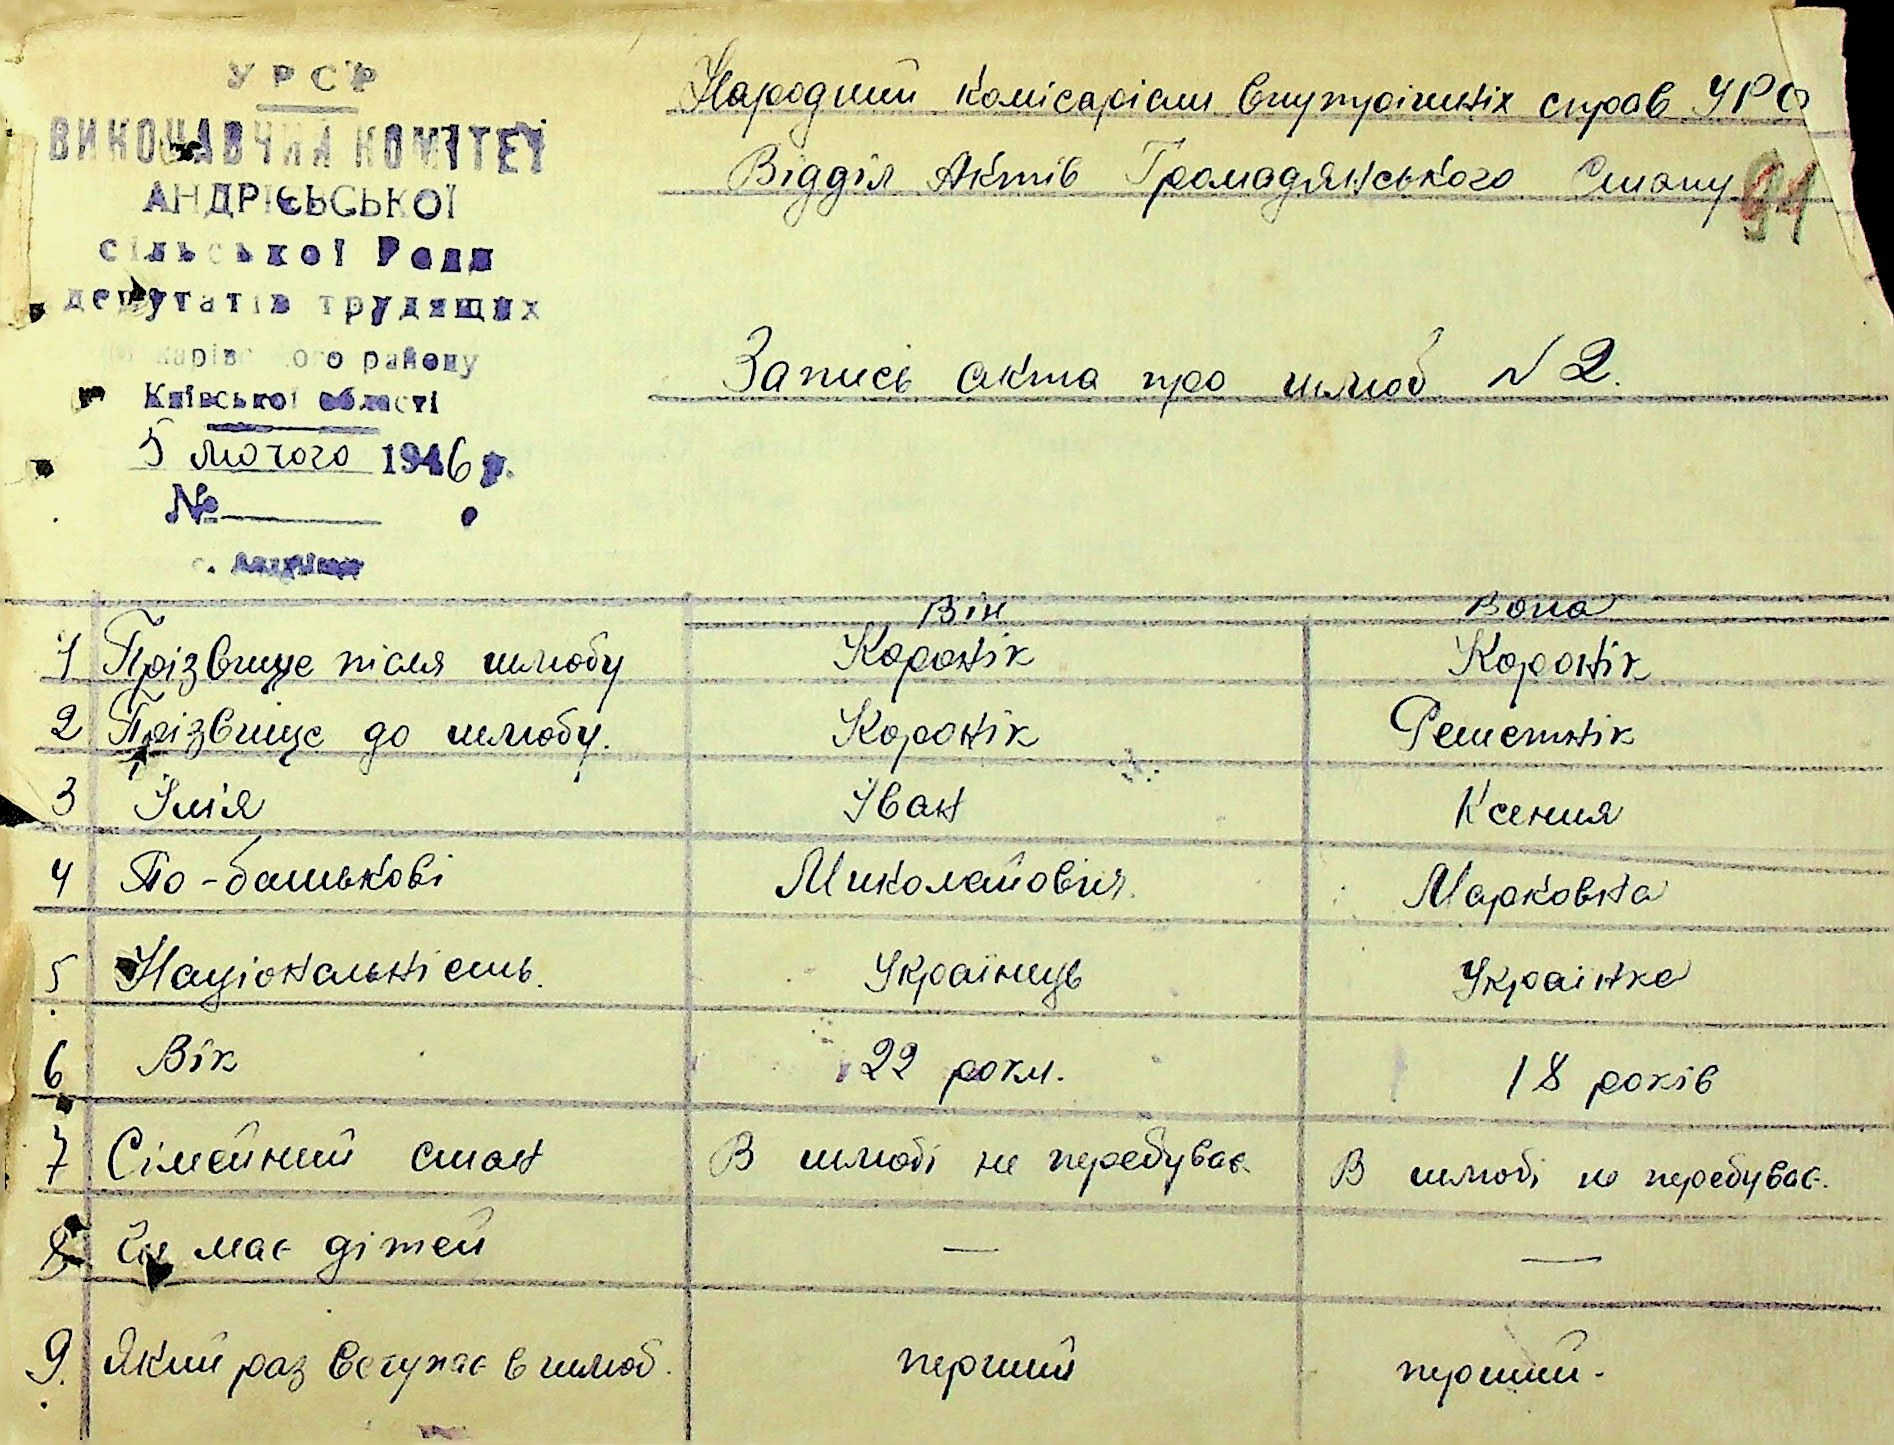 УРСР
ВИКОНАВЧИЙ КОМІТЕТ
АНДРІЄВСЬКОЇ
сільської Ради
депутатів трудящих
району
Київської області
5 лютого 1946 р.
№
Народний Комісаріат Внутрішніх справ УРС
Відділ Актів Громадянського Стану
91
Запись акта про шлюб №2.
Він Вона
1 Прізвище після шлюбу Коронік Коронік
2 Прізвище до шлюбу. Коронік Решетнік
3 Імія Іван Ксения
4 По-батькові Миколайовіч. Марковна
5 Національність. Українець Українка
6 Вік 22 роки. 18 років
7 Сімейний стан В шлюбі не перебуває. В шлюбі не перебуває.
8 Чи має дітей — —
9. Який раз вступає в шлюб. перший перший.